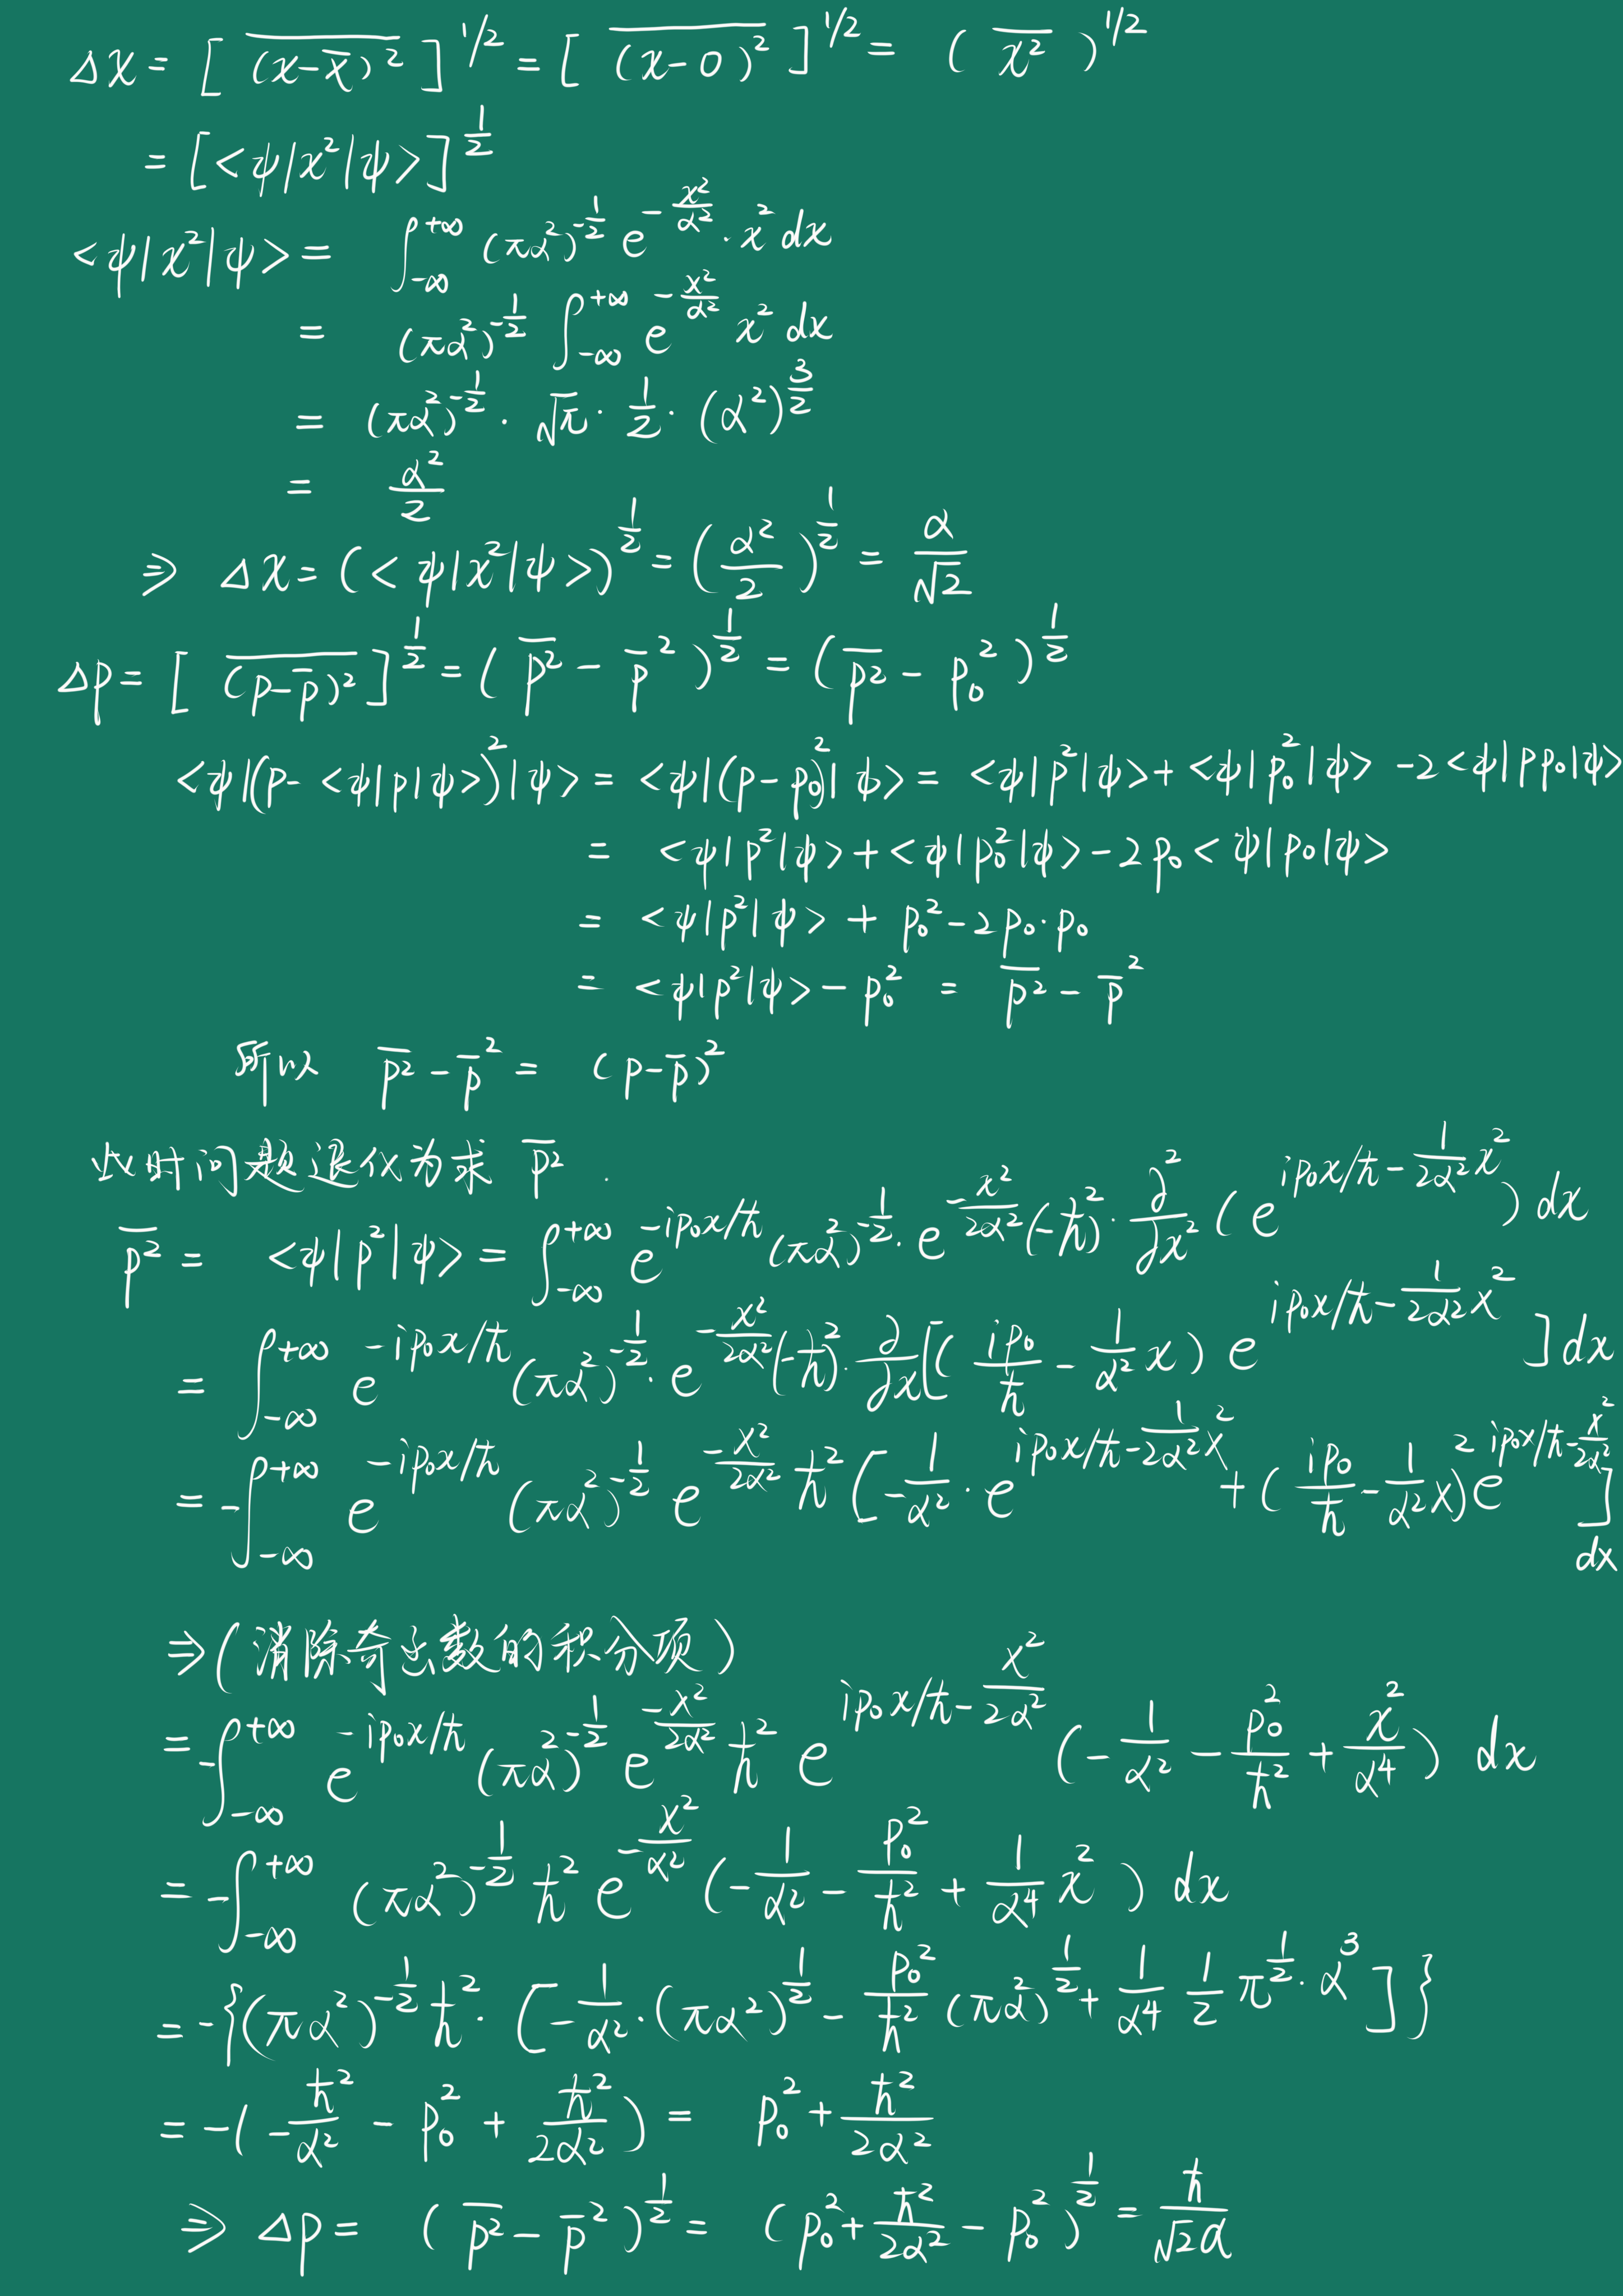 Δx = [ \overline{(x-\overline{x})^2} ]^{1/2} = [ \overline{(x-0)^2} ]^{1/2} = ( \overline{x^2} )^{1/2}
= [<ψ|x^2|ψ>]^{\frac{1}{2}}
<ψ|x^2|ψ> = \int_{-∞}^{+∞} (πα^2)^{-\frac{1}{2}} e^{-\frac{x^2}{α^2}} · x^2 dx
= (πα^2)^{-\frac{1}{2}} \int_{-∞}^{+∞} e^{-\frac{x^2}{α^2}} x^2 dx
= (πα^2)^{-\frac{1}{2}} · \sqrt{π} · \frac{1}{2} · (α^2)^{\frac{3}{2}}
= \frac{α^2}{2}
⇒ Δx = (<ψ|x^2|ψ>)^{\frac{1}{2}} = (\frac{α^2}{2})^{\frac{1}{2}} = \frac{α}{\sqrt{2}}
Δp = [ \overline{(p-\overline{p})^2} ]^{\frac{1}{2}} = ( \overline{p^2} - \overline{p}^2 )^{\frac{1}{2}} = ( \overline{p^2} - p_0^2 )^{\frac{1}{2}}
<ψ|(p-<ψ|p|ψ>)^2|ψ> = <ψ|(p-p_0)^2|ψ> = <ψ|p^2|ψ> + <ψ|p_0^2|ψ> - 2<ψ|pp_0|ψ>
= <ψ|p^2|ψ> + <ψ|p_0^2|ψ> - 2p_0<ψ|p_0|ψ>
= <ψ|p^2|ψ> + p_0^2 - 2p_0·p_0
= <ψ|p^2|ψ> - p_0^2 = \overline{p^2} - \overline{p}^2
所以 \overline{p^2} - \overline{p}^2 = (p-\overline{p})^2
此时问题退化为求 \overline{p^2} .
\overline{p^2} = <ψ|p^2|ψ> = \int_{-∞}^{+∞} e^{-ip_0x/ħ} (πα^2)^{-\frac{1}{2}} · e^{-\frac{x^2}{2α^2}} (-ħ)^2 · \frac{∂^2}{∂x^2} ( e^{ip_0x/ħ - \frac{1}{2α^2}x^2} ) dx
= \int_{-∞}^{+∞} e^{-ip_0x/ħ} (πα^2)^{-\frac{1}{2}} · e^{-\frac{x^2}{2α^2}} (-ħ^2) · \frac{∂}{∂x} [( \frac{ip_0}{ħ} - \frac{1}{α^2}x ) e^{ip_0x/ħ - \frac{1}{2α^2}x^2} ] dx
= -\int_{-∞}^{+∞} e^{-ip_0x/ħ} (πα^2)^{-\frac{1}{2}} e^{-\frac{x^2}{2α^2}} ħ^2 [ -\frac{1}{α^2} · e^{ip_0x/ħ - \frac{1}{2α^2}x^2} + ( \frac{ip_0}{ħ} - \frac{1}{α^2}x )^2 e^{ip_0x/ħ - \frac{x^2}{2α^2}} ] dx
⇒ (消除奇函数的积分项)
= -\int_{-∞}^{+∞} e^{-ip_0x/ħ} (πα^2)^{-\frac{1}{2}} e^{-\frac{x^2}{2α^2}} ħ^2 e^{ip_0x/ħ - \frac{x^2}{2α^2}} ( -\frac{1}{α^2} - \frac{p_0^2}{ħ^2} + \frac{x^2}{α^4} ) dx
= -\int_{-∞}^{+∞} (πα^2)^{-\frac{1}{2}} ħ^2 e^{-\frac{x^2}{α^2}} ( -\frac{1}{α^2} - \frac{p_0^2}{ħ^2} + \frac{1}{α^4}x^2 ) dx
= -{(πα^2)^{-\frac{1}{2}} ħ^2 · [ -\frac{1}{α^2} · (πα^2)^{\frac{1}{2}} - \frac{p_0^2}{ħ^2} (πα^2)^{\frac{1}{2}} + \frac{1}{α^4} \frac{1}{2} π^{\frac{1}{2}} · α^3 ]}
= -( -\frac{ħ^2}{α^2} - p_0^2 + \frac{ħ^2}{2α^2} ) = p_0^2 + \frac{ħ^2}{2α^2}
⇒ Δp = ( \overline{p^2} - \overline{p}^2 )^{\frac{1}{2}} = ( p_0^2 + \frac{ħ^2}{2α^2} - p_0^2 )^{\frac{1}{2}} = \frac{ħ}{\sqrt{2}α}